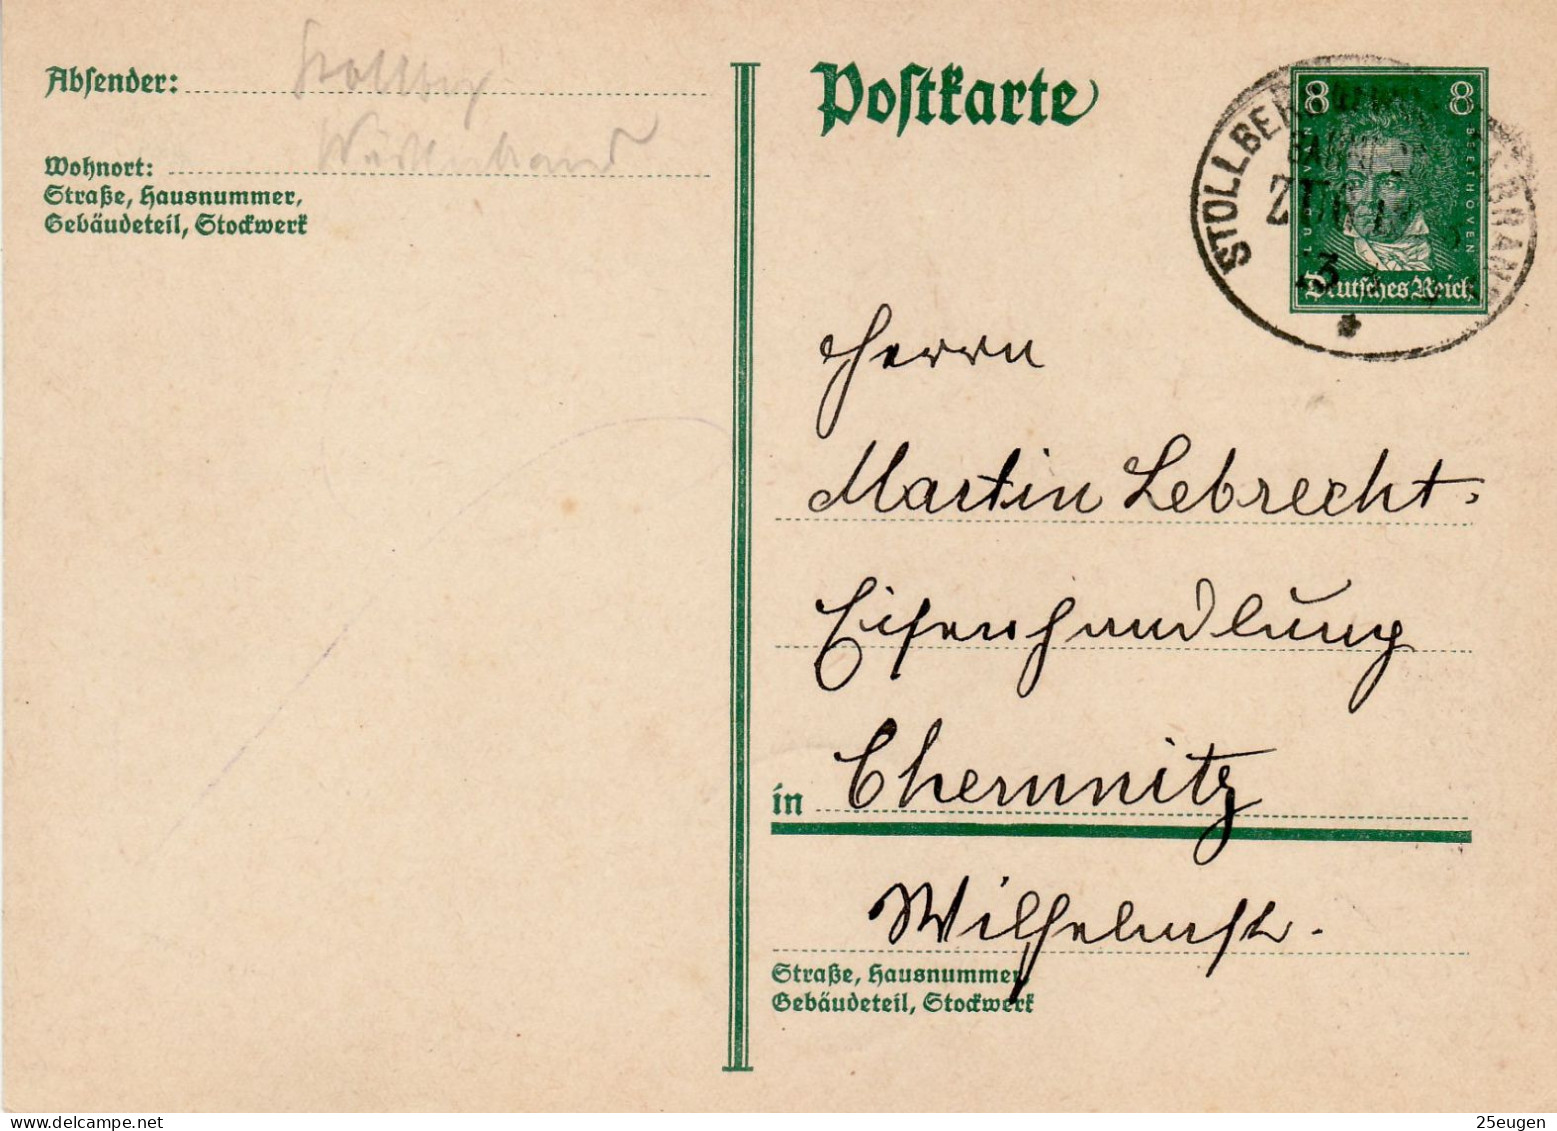 Absender:
Stollberg
Wüstenbrand
Wohnort:
Straße, Hausnummer,
Gebäudeteil, Stockwerk
Postkarte
8 8
BEETHOVEN
Deutsches Reich
STOLLBERG
ZUG
Herrn
Martin Lebrecht.
Eisenhandlung
in Chemnitz
Wilhelmstr.
Straße, Hausnummer,
Gebäudeteil, Stockwerk
delcampe.net
25eugen